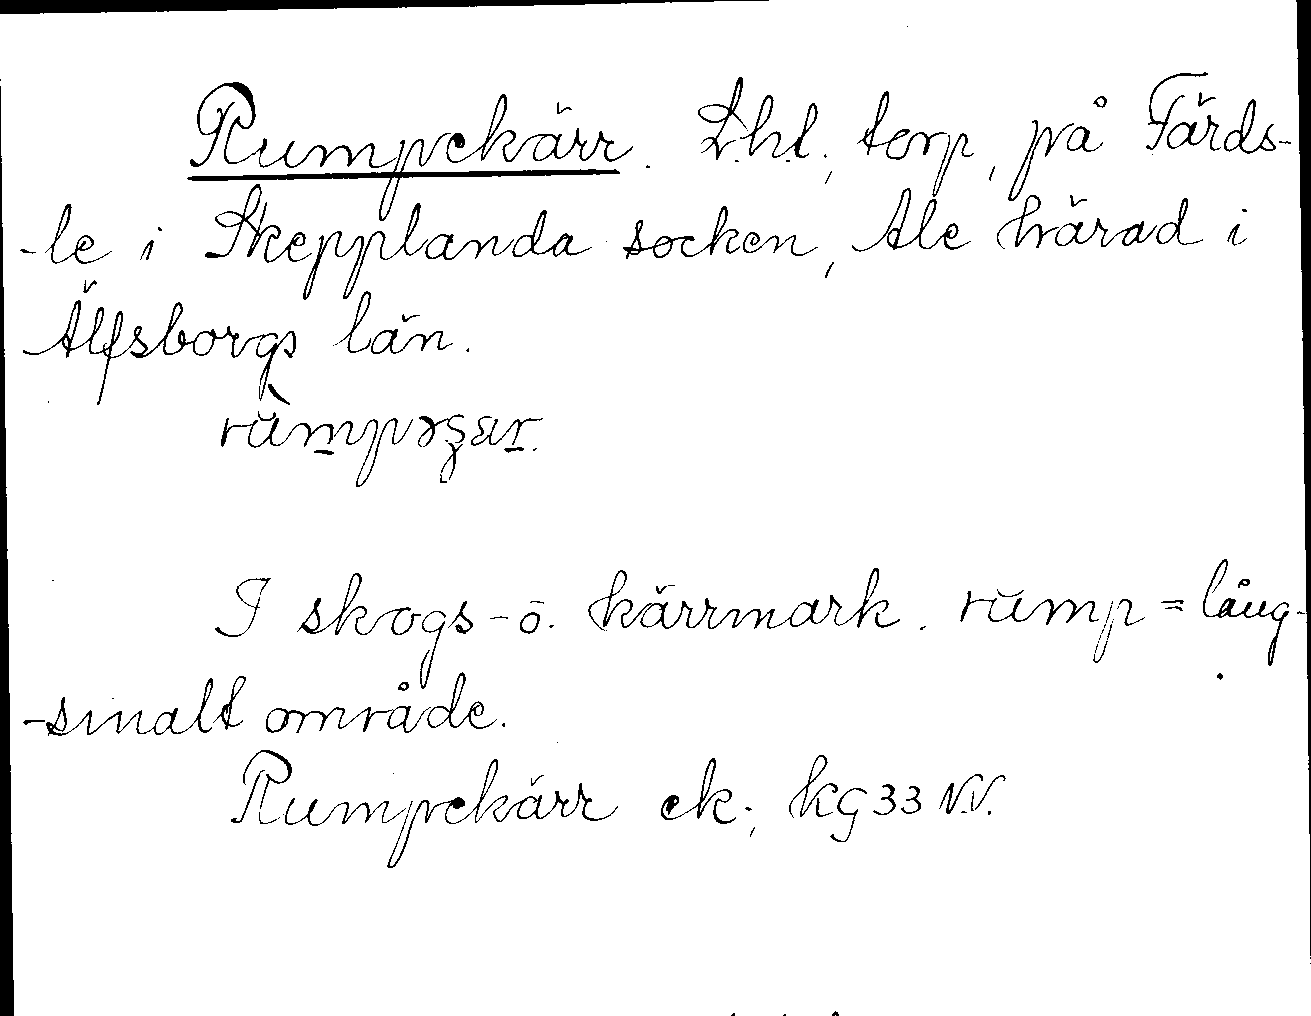 Rumpekärr. Lht, torp, på Färds-
-le i Skepplanda socken, Ale härad i
Älfsborgs län.
I skogs- o. kärrmark. rump = lång-
-smalt område.
Rumpekärr ek; KG33 NV.